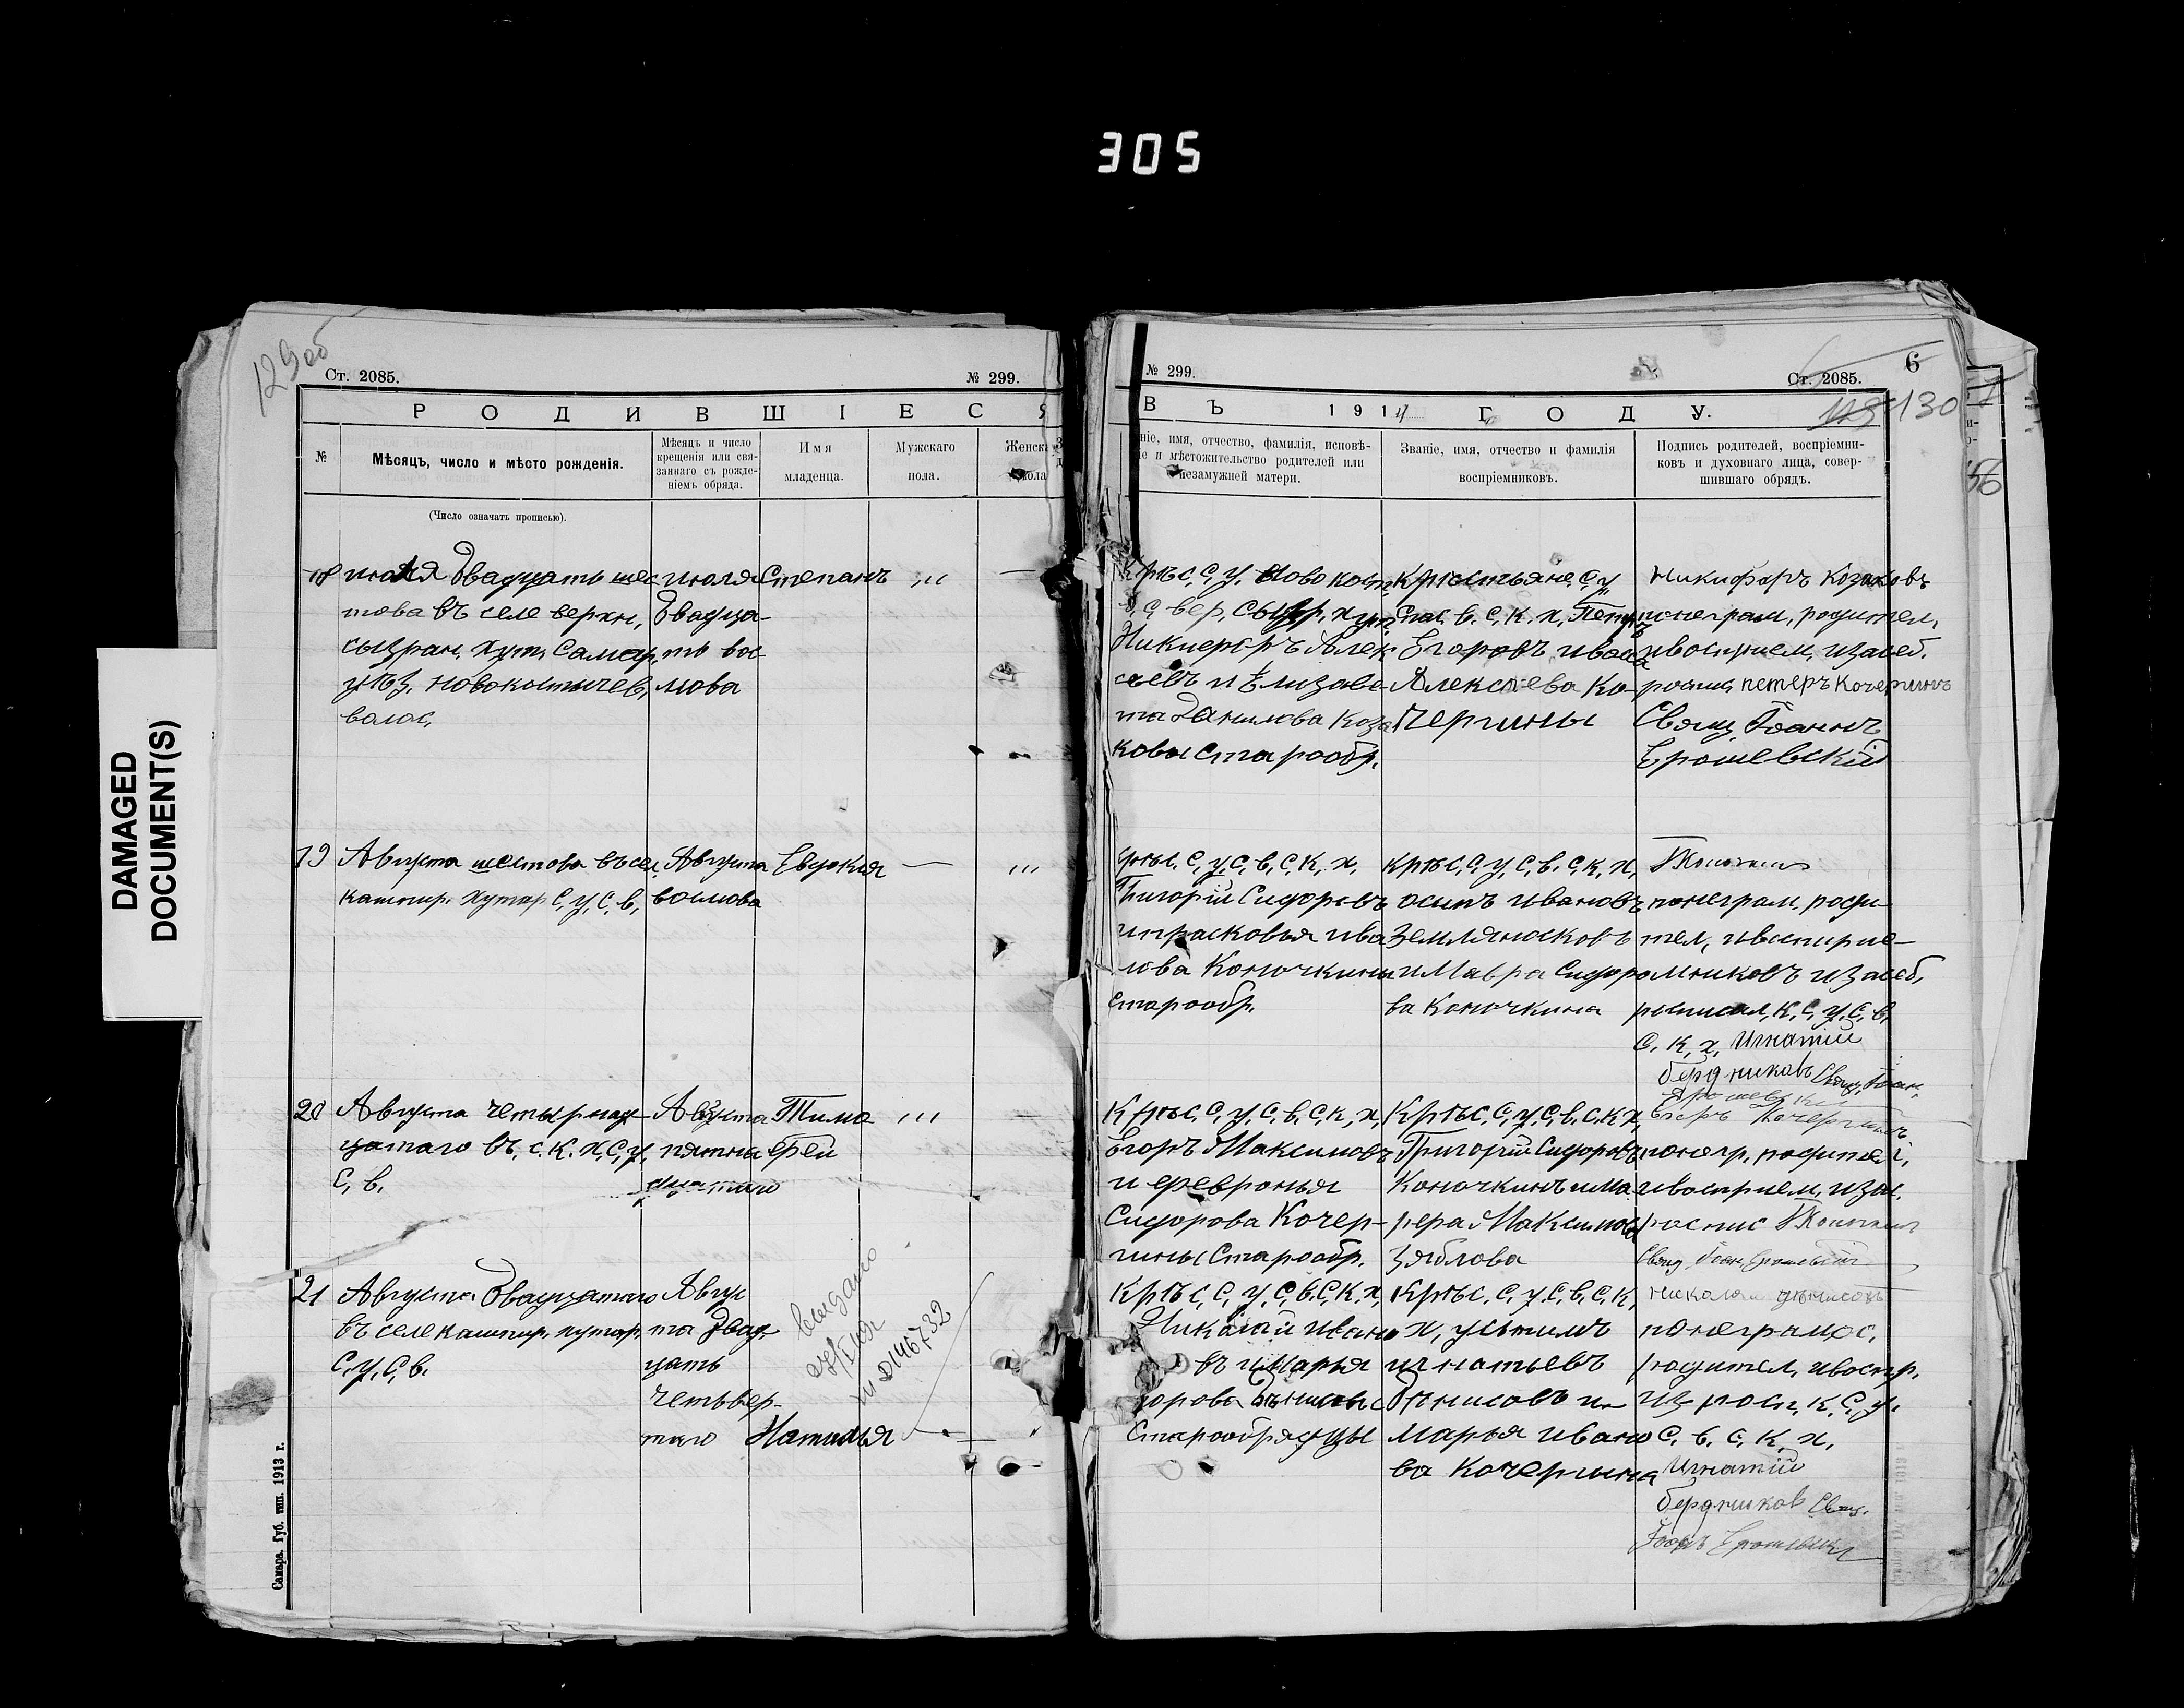 305
DAMAGED
DOCUMENT(S)
129об
Ст. 2085.
№ 299.
РОДИВШІЕСЯ
№
Мѣсяцъ, число и мѣсто рожденія.
Мѣсяцъ и число
крещенія или свя-
заннаго съ рожде-
ніемъ обряда.
Имя
младенца.
Мужскаго
пола.
Женск
пола
(Число означать прописью).
18 июля Двадцать шес
това въ селе верхн,
сызран. хут, Самар,
уѣз. новокостычев,
волос,
июля
Двадца-
ть вос
мова
Степанъ
19 Августа шестова въ сел,
кашпир. хутар С, у, С, в,
Августа
восмова
Евдокия
20 Августа четырнад-
цатаго въ. с. к. х, С, у,
С, в.
Августа
пятна
дцатаго
Тимо
фей
21 Августа Двадцатаго
въ селе кашпир. хутар,
С, у, С, в.
Авгус
та двад-
цать
четьвер-
таго
Наталья
выдано
№ 2146732
Самара. Губ. тип. 1913 г.
№ 299.
Ст. 2085.
6
130
ВЪ 1914 ГОДУ.
ніе, имя, отчество, фамилія, исповѣ-
іе и мѣстожительство родителей или
незамужней матери.
Званіе, имя, отчество и фамилія
воспріемниковъ.
Подпись родителей, воспріемни-
ковъ и духовнаго лица, совер-
шившаго обрядъ.
Крѣс, С, у, Ново кост,
С, вер, сызр, хут,
Никиеръ Алек
сеевъ и Елизаве-
та Данилова Коза
ковы Старообр.
Крестьяне, С, у,
Спас. в. С, к, х, Петръ
Егоровъ и васса
Алексеева Ко-
чергины
Никифаръ Козаковъ
понеграм, родител,
ивосприем, изасеб.
роспис, петеръ Кочергинъ
Свящ, Іоаннъ
Ерошевскій
крѣс, С, у, С, в, С, К, х,
Григорій Сидоровъ
ипрасковья ива
нова Конючкины
Старообр.
крѣс, С, у, С, в. С, к, х,
осипъ ивановъ
Землянсковъ
и Мавра Сидоро
ва Конючкина
понеграм, роди-
тел, ивосприе-
мниковъ изасеб,
росписал, К, С, у, С, в,
С, к, х, Игнатій
бердниковъ Свящ, Іоан,
Крѣс, С, у, С, в, С, к, х,
Егоръ Максимовъ
и февронья
Сидорова Кочер-
гины Старообр.
Крѣс, С, у, С, в. С, к, х,
Григорій Сидоровъ
Конючкинъ има
рфа Максимова
Зяблова
Егоръ Кочергинъ
понегр, родител,
ивосприем, изас.
роспис
Свящ, Іоан, Ерошевскій
Крѣс, С, у, С, в. С, К, х,
Николай ивано
въ и Марья
дорова Денисовы
Старообрядцы
Крѣс. С, у, С, в, С, К,
х, устинъ
игнатьевъ
Денисовъ и
Марья ивано
ва Кочергина
николай денисовъ
понеграмос,
родител, ивоспр,
из росп, к, С, у.
С, в, С, К, х,
Игнатій
бердниковъ Свящ.
Іоанъ Ерошевскій